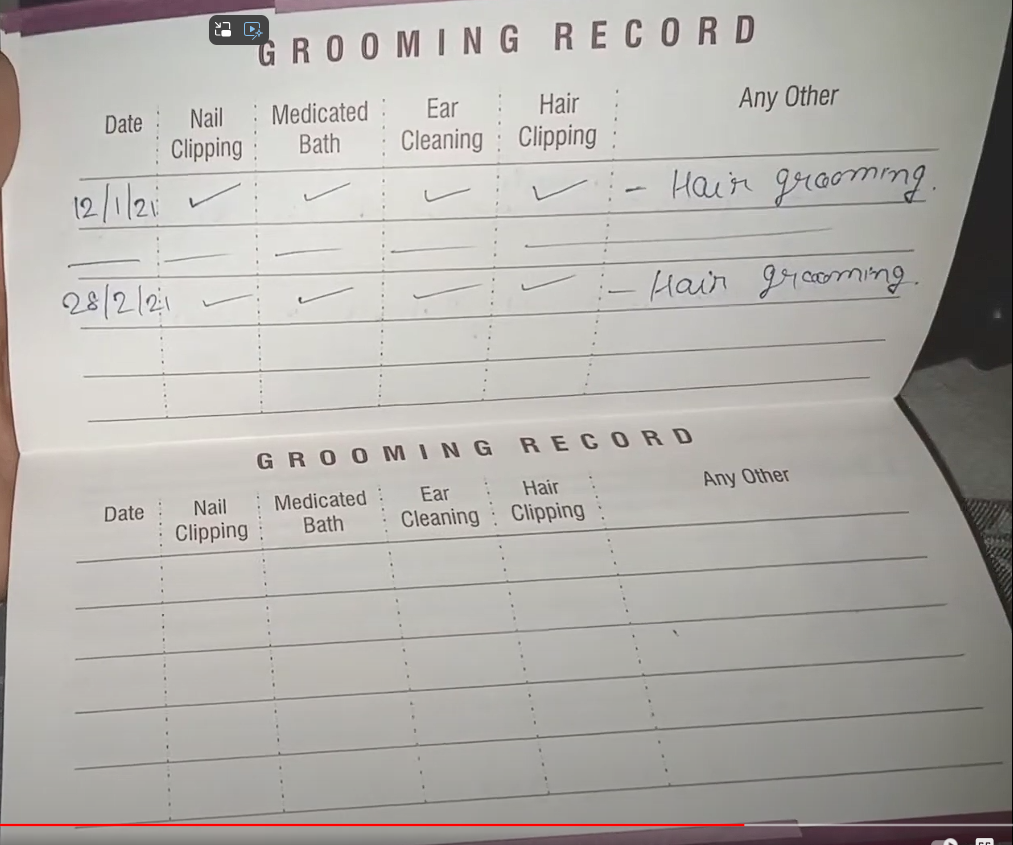 GROOMING RECORD
Date Nail Clipping Medicated Bath Ear Cleaning Hair Clipping Any Other
12/1/21 ✓ ✓ ✓ ✓ - Hair grooming.
— — — — —
28/2/21 ✓ ✓ ✓ ✓ - Hair grooming.
GROOMING RECORD
Date Nail Clipping Medicated Bath Ear Cleaning Hair Clipping Any Other